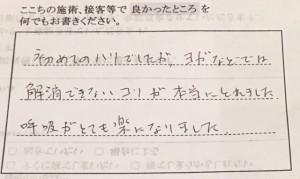 ここちの施術、接客等で 良かったところ を
何でもお書きください。
初めてのハリでしたが、ヨガなどでは
解消できないコリが本当にとれました
呼吸がとても楽になりました。